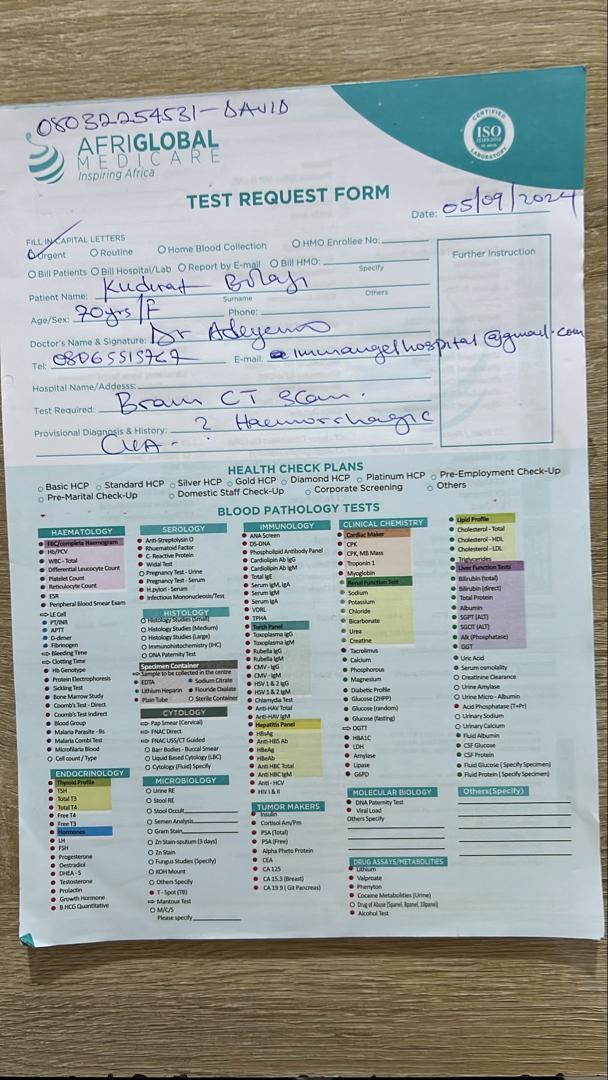 08032254531 - DAVID
AFRIGLOBAL
MEDICARE
Inspiring Africa
CERTIFIED
ISO
LABORATORY
TEST REQUEST FORM
Date: 05/09/2024
FILL IN CAPITAL LETTERS
Urgent Routine Home Blood Collection HMO Enrollee No:
Bill Patients Bill Hospital/Lab Report by E-mail Bill HMO: Specify
Further Instruction
Patient Name: Kudirat Bolaji
Surname Others
Age/Sex: 70yrs/F Phone:
Doctor's Name & Signature: Dr Adeyemo
Tel: 08065515767 E-mail: immanangelhospital@gmail.com
Hospital Name/Addesss:
Test Required: Brain CT Scan.
Provisional Diagnosis & History: ? Haemorrhagic
CVA -
HEALTH CHECK PLANS
Basic HCP Standard HCP Silver HCP Gold HCP Diamond HCP Platinum HCP Pre-Employment Check-Up
Pre-Marital Check-Up Domestic Staff Check-Up Corporate Screening Others
BLOOD PATHOLOGY TESTS
HAEMATOLOGY
FBC/complete Haemogram
Hb/PCV
WBC - Total
Differential Leucocyte Count
Platelet Count
Reticulocyte Count
ESR
Peripheral Blood Smear Exam
LE Cell
PT/INR
APTT
D-dimer
Fibrinogen
Bleeding Time
Clotting Time
Hb Genotype
Protein Electrophoresis
Sickling Test
Bone Marrow Study
Coomb's Test - Direct
Coomb's Test Indirect
Blood Group
Malaria Parasite - Bs
Malaria Combi Test
Microfilaria Blood
Cell count / Type
ENDOCRINOLOGY
Thyroid Profile
TSH
Total T3
Total T4
Free T4
Free T3
Hormones
LH
FSH
Progesterone
Oestradiol
DHEA - S
Testosterone
Prolactin
Growth Hormone
B HCG Quantitative
SEROLOGY
Anti-Streptolysin O
Rhuematoid Factor
C- Reactive Protein
Widal Test
Pregnancy Test - Urine
Pregnancy Test - Serum
H.pylori - Serum
Infectious Mononucleosis/Test
HISTOLOGY
Histology Studies (Small)
Histology Studies (Medium)
Histology Studies (Large)
Immunohistochemistry (IHC)
DNA Paternity Test
Specimen Container
Sample to be collected in the centre
EDTA Sodium Citrate
Lithium Heparin Fluoride Oxalate
Plain Tube Sterile Container
CYTOLOGY
Pap Smear (Cervical)
FNAC Direct
FNAC USS/CT Guided
Barr Bodies - Buccal Smear
Liquid Based Cytology (LBC)
Cytology (Fluid) Specify
MICROBIOLOGY
Urine RE
Stool RE
Stool Occult
Semen Analysis
Gram Stain
Zn Stain-sputum (3 days)
Zn Stain
Fungus Studies (Specify)
KOH Mount
Others Specify
T - Spot (TB)
Mantoux Test
M/C/S
Please specify
IMMUNOLOGY
ANA Screen
DS-DNA
Phospholipid Antibody Panel
Cardiolipin Ab IgG
Cardiolipin Ab IgM
Total IgE
Serum IgM, IgA
Serum IgM
Serum IgA
VDRL
TPHA
Torch Panel
Toxoplasma IgG
Toxoplasma IgM
Rubella IgG
Rubella IgM
CMV - IgG
CMV - IgM
HSV 1 & 2 IgG
HSV 1 & 2 IgM
Chlamydia Test
Anti-HAV Total
Anti-HAV IgM
Hepatitis Panel
HBsAg
Anti-HBS Ab
HBeAg
HBeAb
Anti HBC Total
Anti HBC IgM
Anti - HCV
HIV I & II
TUMOR MAKERS
Insulin
Cortisol Am/Pm
PSA (Total)
PSA (Free)
Alpha Pheto Protein
CEA
CA 125
CA 15.3 (Breast)
CA 19.9 ( Git Pancreas)
CLINICAL CHEMISTRY
Cardiac Maker
CPK
CPK, MB Mass
Troponin 1
Myoglobin
Renal Function Test
Sodium
Potassium
Chloride
Bicarbonate
Urea
Creatine
Tacrolimus
Calcium
Phosphorous
Magnesium
Diabetic Profile
Glucose (2HPP)
Glucose (random)
Glucose (fasting)
OGTT
HBA1C
LDH
Amylase
Lipase
G6PD
MOLECULAR BIOLOGY
DNA Paternity Test
Viral Load
Others Specify
DRUG ASSAYS/METABOLITIES
Lithium
Valproate
Phenyton
Cocaine Metabolities (Urine)
Drug of Abuse (5panel, 8panel, 10panel)
Alcohol Test
Lipid Profile
Cholesterol - Total
Cholesterol - HDL
Cholesterol - LDL
Triglycerides
Liver Function Tests
Bilirubin (total)
Bilirubin (direct)
Total Protein
Albumin
SGPT (ALT)
SGOT (ALT)
Alk (Phosphatase)
GGT
Uric Acid
Serum osmolality
Creatinine Clearance
Urine Amylase
Urine Micro - Albumin
Acid Phosphatase (T+Pr)
Urinary Sodium
Urinary Calcium
Fluid Albumin
CSF Glucose
CSF Protein
Fluid Glucose ( Specify Specimen)
Fluid Protein ( Specify Specimen)
Others(Specify)